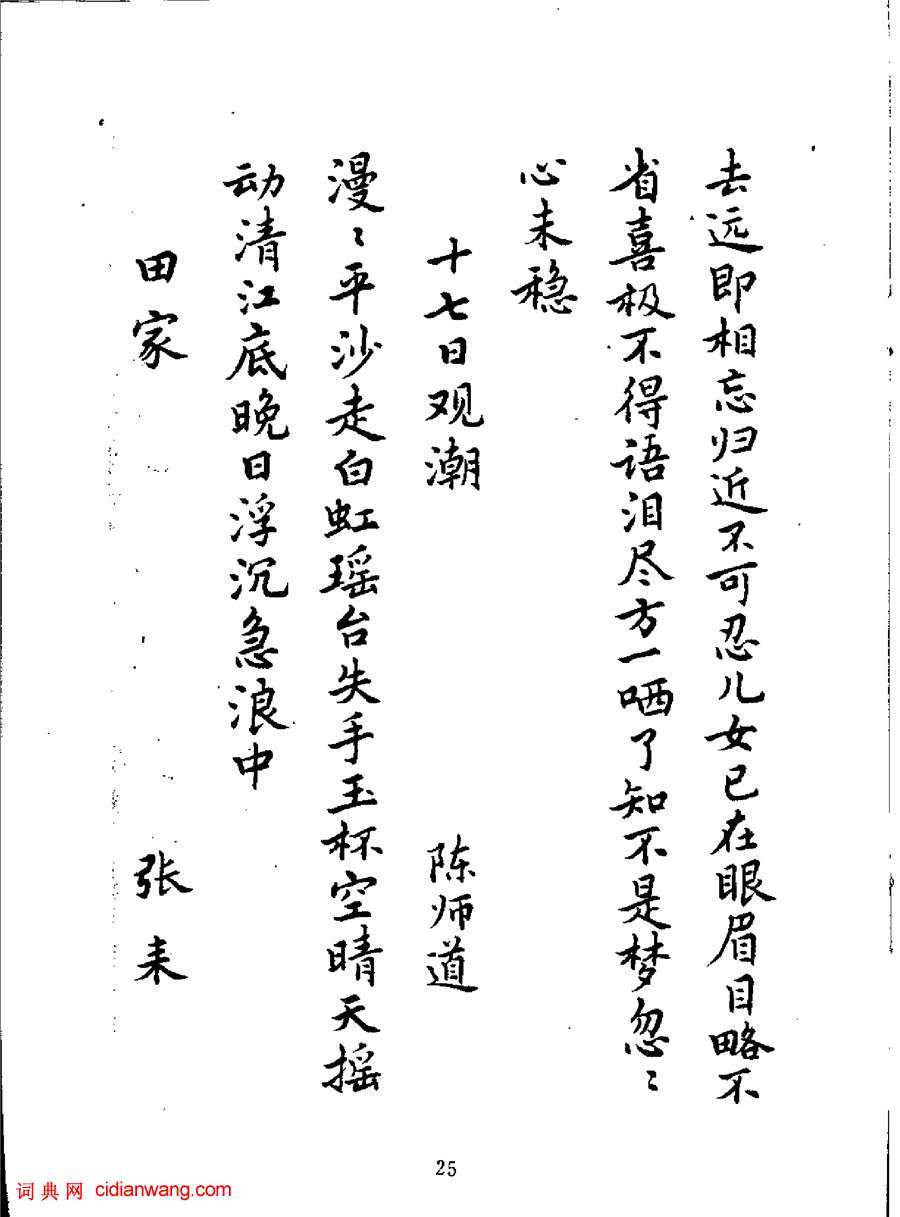 去远即相忘归近不可忍儿女已在眼眉目略不
省喜极不得语泪尽方一哂了知不是梦忽〻
心未稳
十七日观潮 陈师道
漫〻平沙走白虹瑶台失手玉杯空晴天摇
动清江底晚日浮沉急浪中
田家 张耒
25
词典网 cidianwang.com